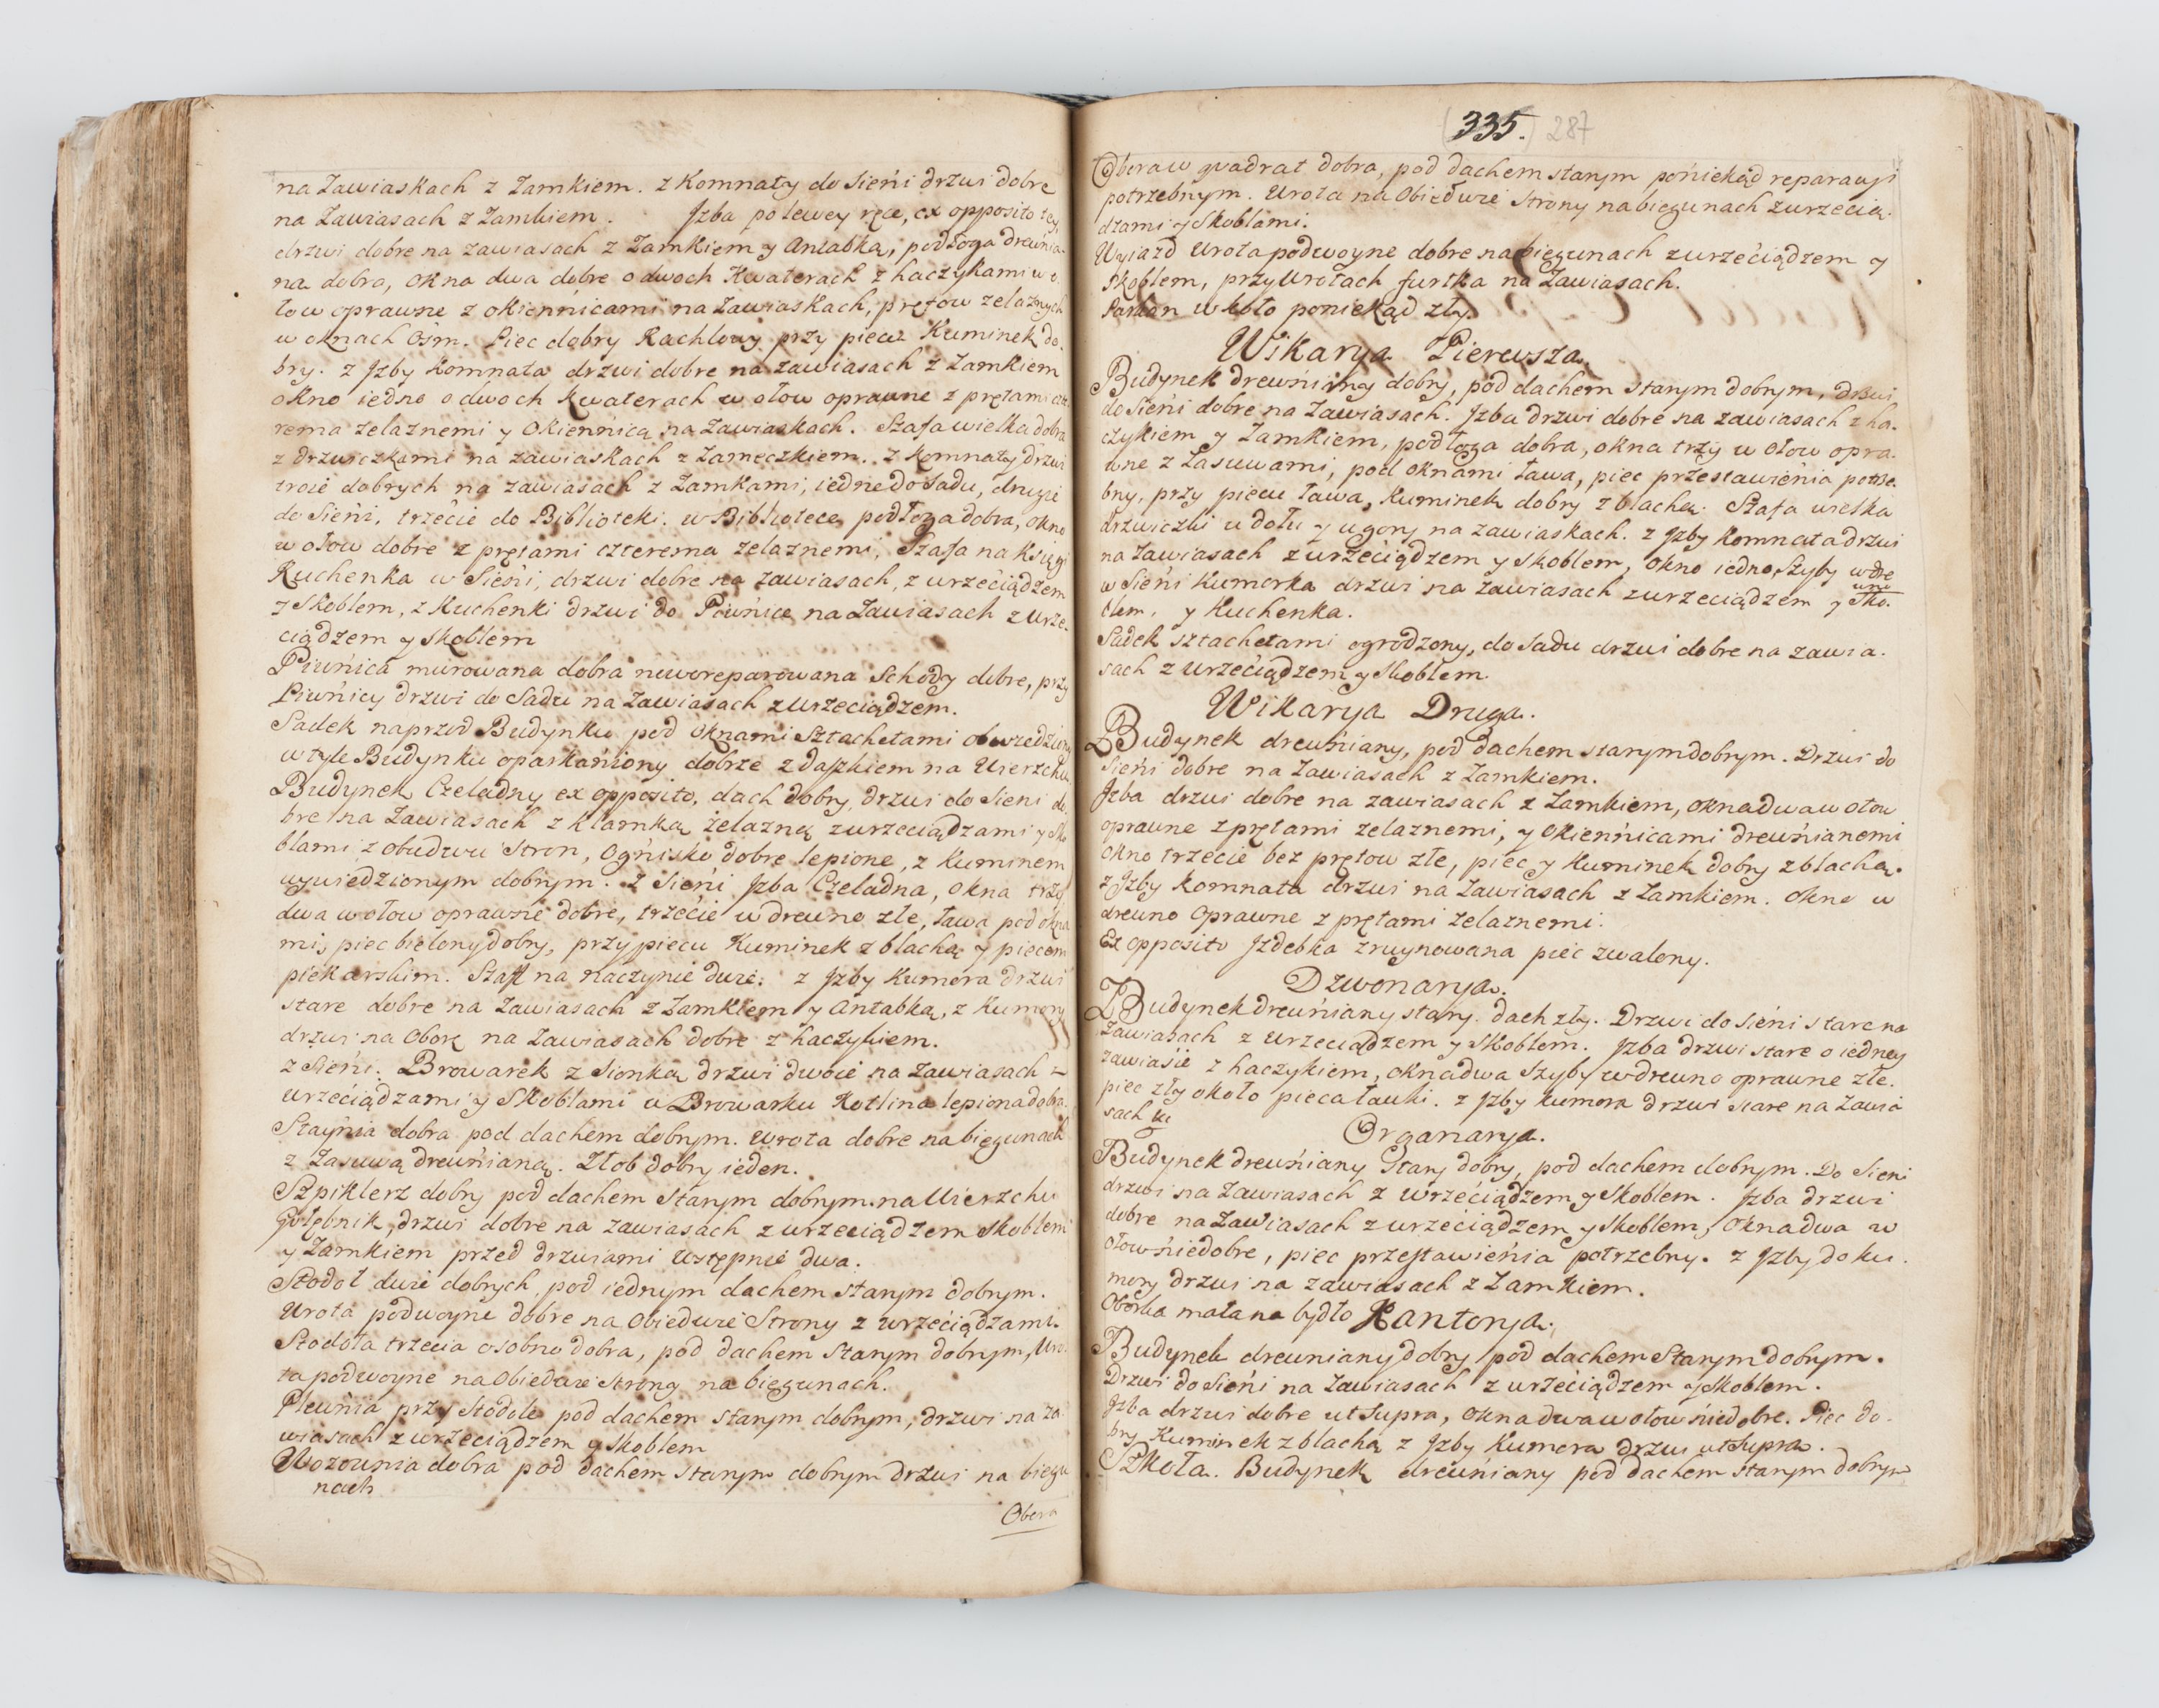 na Zawiaskach z Zamkiem. z Komnaty do Sieńi drzwi dobre
na Zawiasach z Zamkiem. Jzba po lewey ręce, ex opposito tey
drzwi dobre na zawiasach z Zamkiem y Antabką, podłoga drewnia-
na dobra, okna dwa dobre o dwoch Kwaterach z haczykami w o
łow oprawne z okiennicami na Zawiaskach, prętow zelaznych
w oknach Ośm. Piec dobry Kachlowy przy piecu Kuminek do-
bry. z Jzby Komnata drzwi dobre na zawiasach z Zamkiem
okno iedno o dwoch kwaterach w ołow oprawne z prętami czte
rema zelaznemi y Okiennicą na Zawiaskach. Szafa wielka dobra
z drzwiczkami na zawiaskach z Zameczkiem. z Komnaty drzwi
troie dobrych na zawiasach z Zamkami, iedne do Sadu, drugie
do Sieńi, trzecie do Biblioteki. w Bibliotece podłoga dobra, okno
w ołow dobre z prętami czterema zelaznemi, Szafa na Księgi
Kuchenka w Sieńi, drzwi dobre na zawiasach, z wrzeciądzem
y Skoblem, z Kuchenki drzwi do Piwnice na Zawiasach z wrze-
ciądzem y skoblem
Piwńica murowana dobra noworeparowana Schody dobre, przy
Piwńicy drzwi do Sadu na Zawiasach z wrzeciądzem.
Sadek naprzod Budynku pod oknami Sztachetami obwiedziony
w tyle Budynku oparkaniony dobrze z daszkiem na Wierzchu
Budynek Czeladny ex opposito, dach dobry, drzwi do Sieni do
bre na Zawiasach z klamką żelazną z wrzeciądzami y Sko
blami z obudwu Stron, Ognisko dobre lepione, z Kuminem
wywiedzionym dobrym. z Sieńi Jzba Czeladna, okna trzy
dwa w ołow oprawne dobre, trzecie w drewno złe, ława pod okna
mi, piec bielony dobry, przy piecu Kuminek z blachą y piecem
piekarskim. Szaf na naczynie dwie. z Jzby Kumora drzwi
stare dobre na Zawiasach z Zamkiem y Antabką, z Kumory
drzwi na Oborę na Zawiasach dobre z haczykiem.
z Sieńi. Browarek z Sionką drzwi dwoie na Zawiasach z
wrzeciądzami y Skoblami w Browarku Kotlina lepiona dobra.
Staynia dobra pod dachem dobrym. wrota dobre na biegunach
z Zasuwą drewnianą. Złob dobry ieden.
Szpiklerz dobry pod dachem Starym dobrym. na Wierzchu
Gołębnik, drzwi dobre na zawiasach z wrzeciądzem Skoblem
y Zamkiem przed drzwiami Wstępnie dwa.
Stodoł dwie dobrych pod iednym dachem Starym dobrym.
Wrota podwoyne dobre na Obiedwie Strony z wrzeciądzami.
Stodoła trzecia osobno dobra, pod dachem Starym dobrym, Wro
ta podwoyne na Obiedwie Strony na biegunach.
Plewńia przy Stodole pod dachem starym dobrym, drzwi na za
wiasach z wrzeciądzem y skoblem
Wozownia dobra pod dachem starym dobrym drzwi na biegu
nach
Obora
335. 287
Obora w qvadrat dobra, pod dachem starym poniekąd reparacyi
potrzebnym. Wrota na Obiedwie Strony na biegunach z wrzecią-
dzami y Skoblami.
Wyiazd Wrota podwoyne dobre na biegunach z wrzeciądzem y
Skoblem, przy Wrotach furtka na Zawiasach.
Parkan w koło poniekąd zły.
Wikarya Pierwsza.
Budynek drewniany dobry, pod dachem starym dobrym, Drzwi
do Sieńi dobre na Zawiasach. Jzba drzwi dobre na zawiasach z ha-
czykiem y Zamkiem, podłoga dobra, okna trzy w Ołow opra-
wne z Zasuwami, pod oknami ława, piec przestawienia potrze-
bny, przy piecu ława, Kuminek dobry z blachą. Szafa wielka
drzwiczki u dołu y ugory na zawiaskach. z Jzby Komnata drzwi
na Zawiasach z wrzeciądzem y Skoblem, okno iedno, Szyby w dre
wno
w Sieńi Kumorka drzwi na zawiasach z wrzeciądzem y Sko-
blem, y Kuchenka.
Sadek sztachetami ogrodzony, do Sadu drzwi dobre na zawia-
sach z wrzeciądzem y Skoblem.
Wikarya Druga.
Budynek drewniany, pod dachem starym dobrym. Drzwi do
Sieńi dobre na Zawiasach z Zamkiem.
Jzba drzwi dobre na zawiasach z Zamkiem, okna dwa w ołow
oprawne z prętami zelaznemi, y Okiennicami drewnianemi
Okno trzecie bez prętow złe, piec y Kuminek dobry z blachą.
z Jzby Komnata drzwi na Zawiasach z Zamkiem. Okno w
drewno Oprawne z prętami zelaznemi.
Ex opposito Jzdebka zruynowana piec zwalony.
Dzwonarya.
Budynek drewniany stary. dach zły. Drzwi do Sieńi stare na
Zawiasach z wrzeciądzem y Skoblem. Jzba drzwi stare o iedney
zawiasie z haczykiem, okna dwa Szyby w drewno oprawne złe.
piec zły około pieca ławki. z Jzby kumora drzwi stare na Zawia
sach
Organarya.
Budynek drewniany Stary dobry, pod dachem dobrym. Do Sieni
drzwi na Zawiasach z wrzeciądzem y Skoblem. Jzba drzwi
dobre na Zawiasach z wrzeciądzem y Skoblem, Okna dwa w
Ołow niedobre, piec przestawienia potrzebny. z Jzby do ku-
mory drzwi na zawiasach z Zamkiem.
Oborka mała na bydło Kantorya.
Budynek drewniany dobry pod dachem Starym dobrym.
Drzwi do Sieńi na Zawiasach z wrzeciądzem y Skoblem.
Jzba drzwi dobre ut Supra, Okna dwa w ołow niedobre. Piec do-
bry Kuminek z blachą z Jzby Kumora drzwi ut Supra.
Szkoła. Budynek drewniany pod dachem starym dobrym